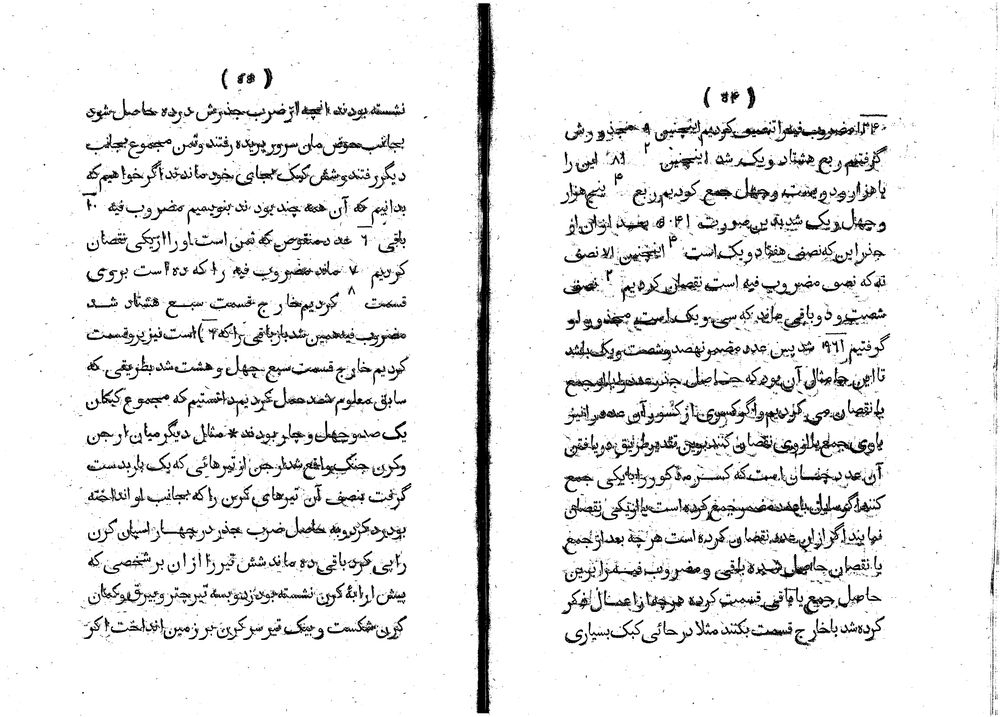 ( ۵۴ )
۱۲۴۰ مضروب فیه را تنصیف کردیم اینچنین ۹ و مجذورش
گرفتیم ربع هشتاد و یک شد اینچنین ۸۱ این را
با هزار و دویست و چهل جمع کردیم ربع پنج هزار
و چهل و یک شد بدین صورت ۵۰۴۱ بعد ازان از
جذر این که نصفی هفتاد و یک است اینچنین نصف
نه که نصف مضروب فیه است نقصان کردیم نصفی
شصت و دو باقی ماند که سی و یک است مجذور او
گرفتیم ۹۶۱ شد پس عدد مضمر نهصد و شصت و یک باشد
تا این جا مثال آن بود که حاصل جذر عدد را با او جمع
یا نقصان می کردیم و اگر کسری از کسور آن عدد را نیز
باوی جمع یا ازوی نقصان کنند برین تقدیر طریق دریافتن
آن عدد چنان است که کسر مذکور را با یکی جمع
کنند اگر سایل با عدد مضمر جمع کرده است یا از یکی نقصان
نمایند اگر ازان عدد نقصان کرده است هر چه بعد از جمع
یا نقصان حاصل شده باقی و مضروب فیه را برین
حاصل جمع یا باقی قسمت کرده هر چه در اعمال
کرده شد با خارج قسمت بکنند مثلا در جائی کبک بسیاری
( ۵۵ )
نشسته بودند انچه از ضرب جذرش در ده حاصل شود
بجانب حوض مان سرور پریده رفتند و ثمن مجموع بجانب
دیگر رفتند و شش کبک بجای خود ماندند اگر خواهیم که
بدانیم که آن همه چند بودند بنویسیم مضروب فیه ۱۰
باقی ۶ عدد منقوص که ثمن است او را از یکی نقصان
کردیم ۷ ماند مضروب فیه را که ده است بروی
قسمت ۸ کردیم خارج قسمت سبع هشتاد شد
مضروب فیه همین شد باز باقی را که ۶ است نیز برو قسمت
کردیم خارج قسمت سبع چهل و هشت شد بطریقی که
سابق معلوم شد عمل کردیم دانستیم که مجموع کبکان
یک صد و چهل و چار بودند * مثال دیگر میان ارجن
و کرن جنگ واقع شد ارجن از تیرهائی که یک بار بدست
گرفت بنصف آن تیرهای کرن را که بجانب او انداخته
بود رد کرد و به حاصل ضرب جذر در چهار اسپان کرن
را پی کرد باقی ده ماند شش تیر را ازان بر شخصی که
پیش ارابهٔ کرن نشسته بود زد و بسه تیر چتر و بیرق و کمان
کرن شکست و بیک تیر سر کرن بر زمین انداخت اگر